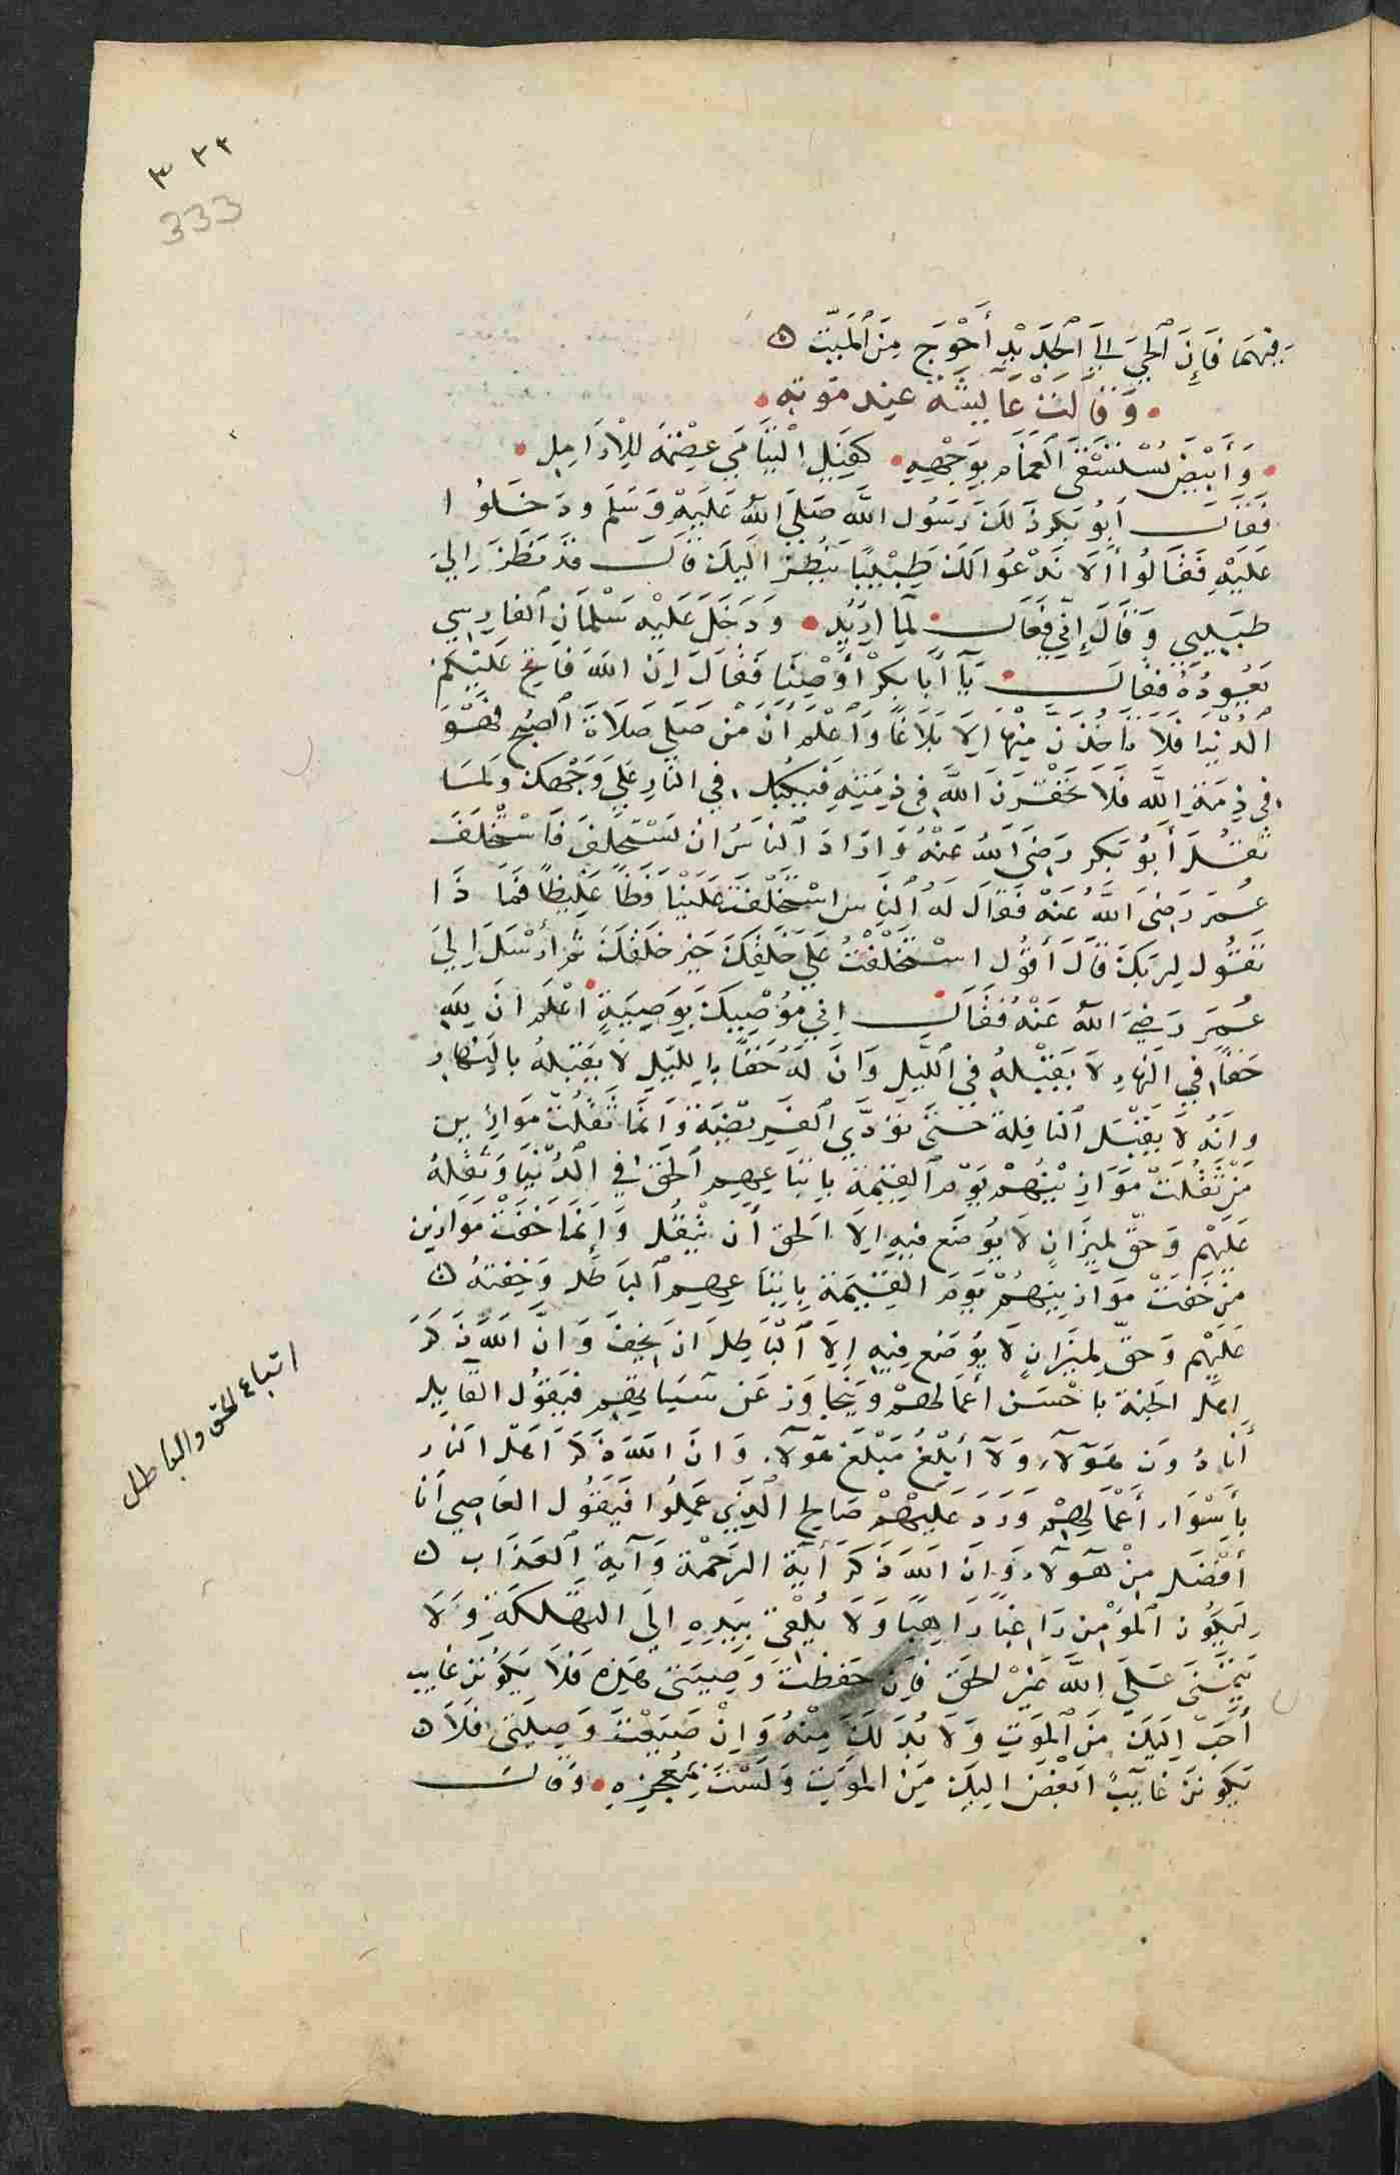 ٣٣٣
333
فيهما فان الحي الى الجديد أحوج من الميت
وقالت عايشة عند موته
وأبيض يستسقى الغمام بوجهه كفيل اليتامى عصمة للارامل
فقال ابو بكر ذلك رسول الله صلى الله عليه وسلم ودخلوا
عليه فقالوا ألا ندعوا لك طبيبا ينظر اليك قال قد نظر الي
طبيبي وقال إني فعال لما اريد ودخل عليه سلمان الفارسي
يعوده فقال يآ أبا بكر أوصنا فقال إن الله فاتح عليكم
الدنيا فلا تاخذن منها الا بلاغا واعلم أن من صلى صلاة الصبح فهو
في ذمة الله فلا تخفرن الله في ذمته فيكبك في النار على وجهك ولما
ثقل أبو بكر رضي الله عنه واراد الناس ان يستخلف فاستخلف
عمر رضي الله عنه فقال له الناس استخلفت علينا فظا غليظا فما ذا
تقول لربك قال أقول استخلفت على خلقك خير خلقك ثم أرسل الي
عمر رضي الله عنه فقال اني موصيك بوصية اعلم ان لله
حقا في النهار لا يقبله في الليل وان له حقا بالليل لا يقبله بالنهار
وانه لا يقبل النافلة حتى تؤدي الفريضة وانما ثقلت موازين
من ثقلت موازينهم يوم القيمة باتباعهم الحق في الدنيا وثقله
عليهم وحق لميزان لا يوضع فيه إلا الحق أن يثقل وإنما خفت موازين
من خفت موازينهم يوم القيمة باتباعهم الباطل وخفته
عليهم وحق لميزان لا يوضع فيه إلا الباطل ان يخف وان الله ذكر
اهل الجنة باحسن أعمالهم وتجاوز عن سياتهم فيقول القايل
أنا دون هؤلآء ولآ أبلغ مبلغ هؤلآء وان الله ذكر اهل النار
بأسواء أعمالهم ورد عليهم صالح الذي عملوا فيقول العاصي أنا
أفضل من هؤلآء وان الله ذكر أية الرحمة وآية العذاب
ليكون المؤمن راغبا راهبا ولا يلقى بيده الى التهلكة ولا
يتمنى على الله غير الحق فإن حفظت وصيتى هذه فلا يكونن غايب
أحب اليك من الموت ولا بد لك منه وإن ضيعت وصيتى فلا
يكونن غايب ابغض اليك من الموت ولست بمعجزه وقال
اتباع الحق والباطل